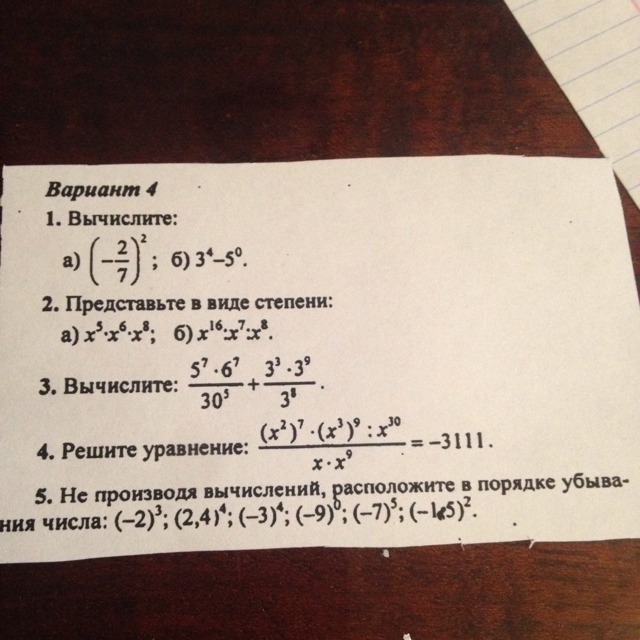 Вариант 4
1. Вычислите:
а) (−2/7)²; б) 3⁴−5⁰.
2. Представьте в виде степени:
а) x⁵·x⁶·x⁸; б) x¹⁶:x⁷:x⁸.
3. Вычислите: (5⁷·6⁷)/30⁵ + (3³·3⁹)/3⁸.
4. Решите уравнение: ((x²)⁷·(x³)⁹:x³⁰)/(x·x⁹) = −3111.
5. Не производя вычислений, расположите в порядке убыва-
ния числа: (−2)³; (2,4)⁴; (−3)⁴; (−9)⁰; (−7)⁵; (−1,5)².